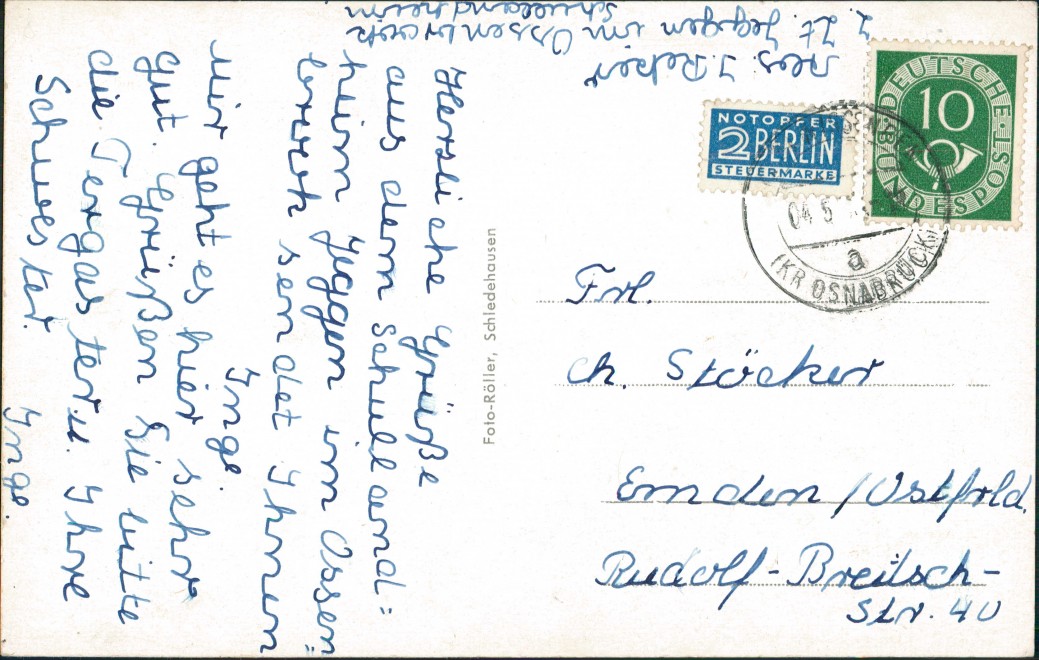 Abs. J. Reker
z. Zt. Jeggen im Ossenbrock
Schullandheim
DEUTSCHE BUNDESPOST
10
NOTOPFER
2 BERLIN
STEUERMARKE
04 5
a
(KR OSNABRÜCK)
Herzliche Grüße
aus dem Schulland=
heim Jeggen im Ossen=
brock sendet Ihnen
Inge.
Mir geht es hier sehr
gut. Grüßen Sie bitte
die Pergaster u. Ihre
Schwester.
Inge.
Foto-Röller, Schledehausen
Frl.
Ch. Stöcker
Emden /Ostfrld.
Rudolf-Breitsch-
Str. 40